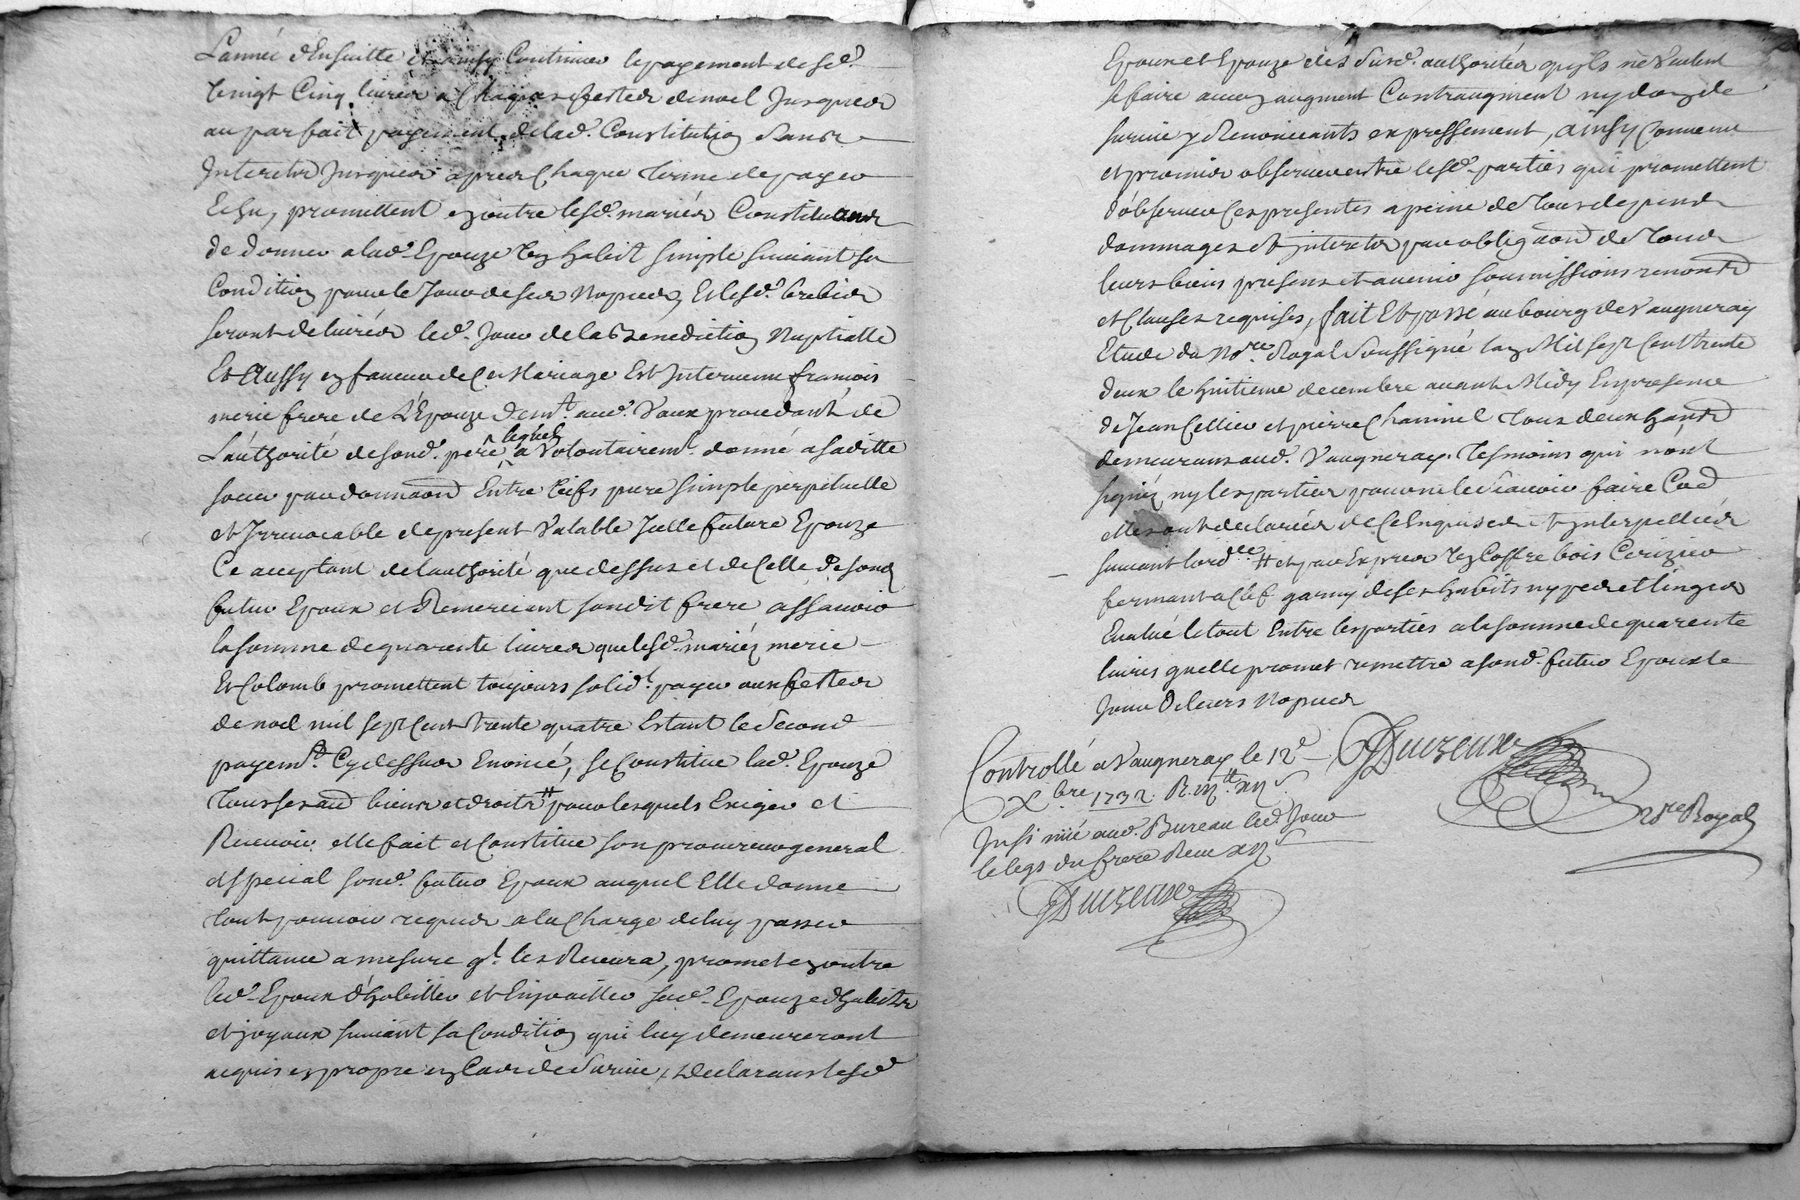 L'année d'Ensuitte et ainsy Continuer le payement desd.
vingt Cinq livres a Chaques festes de noel Jusques
au parfait payement de lad. Constitution Sans
Interets Jusques apres Chaque terme de payer
Echu, promettent en outre lesd. mariés Constituans
de donner a lad. Epouze un habit simple suivant sa
Condition pour le Jour de ses Nopces, Et lesd. brebis
seront delivrées led. Jour de la Benediction Nuptialle
Et Aussy en faveur de Ce Mariage Est Intervenu françois
meric frere de L'Epouze demt. aud. Vaux procedant de
L'authorité de sond. pere lequel a Volontairemt. donné a saditte
soeur par donnaon Entre vifs pure simple perpetuelle
et Irrevocable de present Valable Jcelle future Epouze
Ce acceptant de l'authorité que dessus et de Celle de sond
futur Epoux et Remerciant sondit frere assavoir
la somme de quarente livres que lesd. mariéz meric
Et Colomb promettent toujours solidt. payer aux festes
de noel mil sept Cent trente quatre Estant le Second
payemt. Cy dessus Enoncé, se Constitue lad. Epouze
tous ses aud biens et droits # pour lesquels Exiger et
Recevoir elle fait et Constitue son procureur general
et special sond. futur Epoux auquel Elle donne
tout pouvoir requis a la Charge de luy passer
quittance a mesure ql. les Recevra, promet en outre
led. Epoux d'habiller et Enjoailler sad. Epouze d'habits
et joyaux suivant sa Condition qui luy demeureront
acquis en propre en Cas de Survie, Declarants lesd
Epoux et Epouze des Susd. authorités quils ne Veulent
se faire aucun augment Contraugment ny don de
survie y Renoncants expressement, ainsy Convenu
et promis observer entre lesd. parties qui promettent
d'observer Ces presentes a peine de tous depens
dommages et interets par obligaon de tous
leurs biens presens et avenir soumissions renonons
et Clauses requises, fait Et passé au bourg de Vaugneray
Etude du Nore. Royal Soussigné l'an Mil sept Cent trente
deux le huitieme decembre avant Midy En presence
de Jean Cellier et pierre Chaninel tous deux
demeurans aud. Vaugneray. tesmoins qui n'ont
signéz ny les parties pour ne le Scavoir faire
elles ont declarées de Ce Enquises et Interpellées
suivant lordce # et par Exprés un Coffre bois Cerizier
fermant a Clef garny de ses habits nypes et linges
Evalué le tout Entre les parties a la somme de quarente
livres quelle promet remettre a sond. futur Epoux le
Jour de leurs Nopces
Controllé a Vaugneray le 12e
Xbre 1732.
Insinué aud. Bureau led. Jour
le legs du frere
Nre Royal